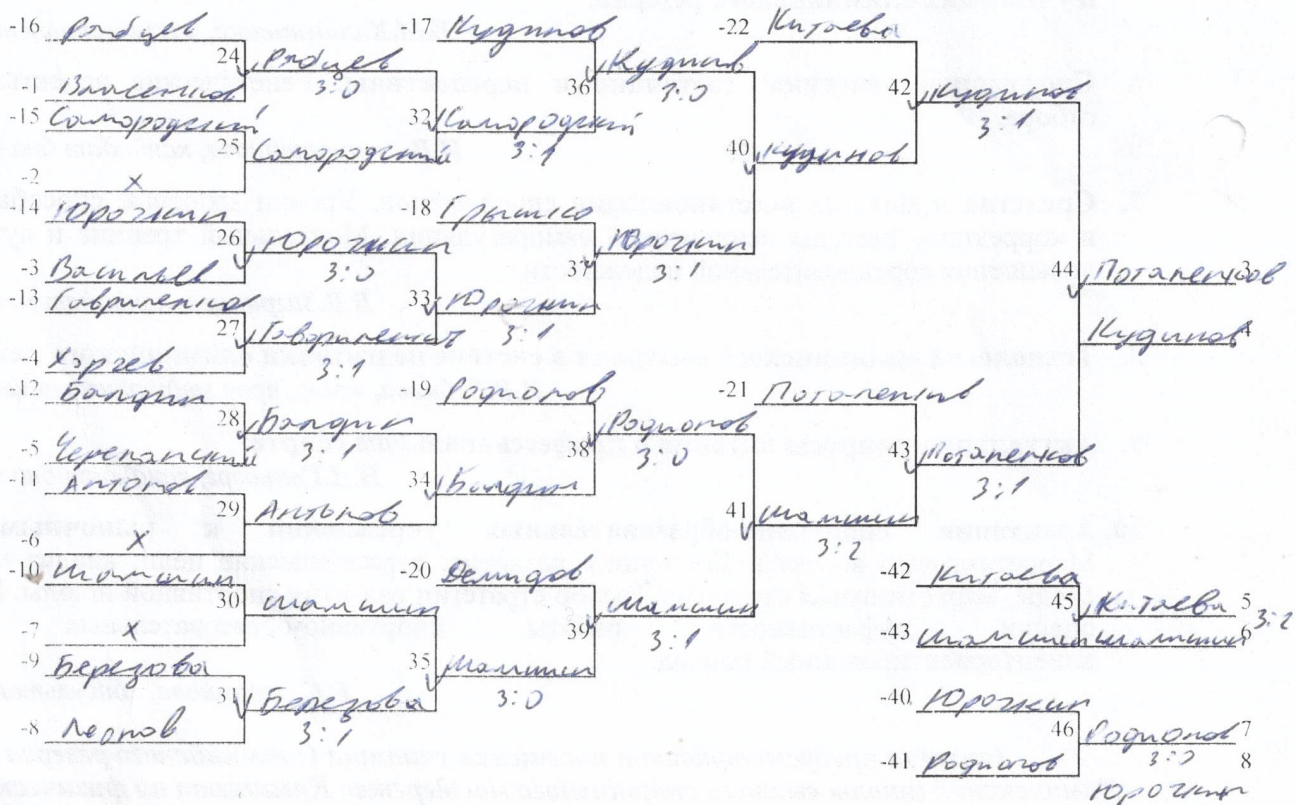 -16 Рябцев
24 Рябцев
3:0
Власенков
-15 Самородский
25 Самородский
-2 x
-14 Юрочкин
26 Юрочкин
3:0
-3 Васильев
-13 Гавриленков
27 Гавриленков
3:1
-4
-12 Болдин
28 Болдин
3:1
-5
-11 Антонов
29 Антонов
-6 x
-10 Шамшин
30 Шамшин
-7 x
-9 Березова
31 Березова
3:1
-8 Леонов
-17 Кудинов
36 Кудинов
3:0
32 Самородский
3:1
-18
37 Юрочкин
3:1
33 Юрочкин
3:1
-19 Родионов
38 Родионов
3:0
34 Болдин
-20 Демидов
39 Шамшин
3:1
35 Шамшин
3:0
-22 Китаева
42 Кудинов
3:1
40 Кудинов
-21 Потапенков
43 Потапенков
3:1
41 Шамшин
3:2
44 Потапенков 3
Кудинов 4
-42 Китаева
45 Китаева 5
3:2
-43 Шамшин Шамшин 6
-40 Юрочкин
46 Родионов 7
3:0
-41 Родионов
8
Юрочкин